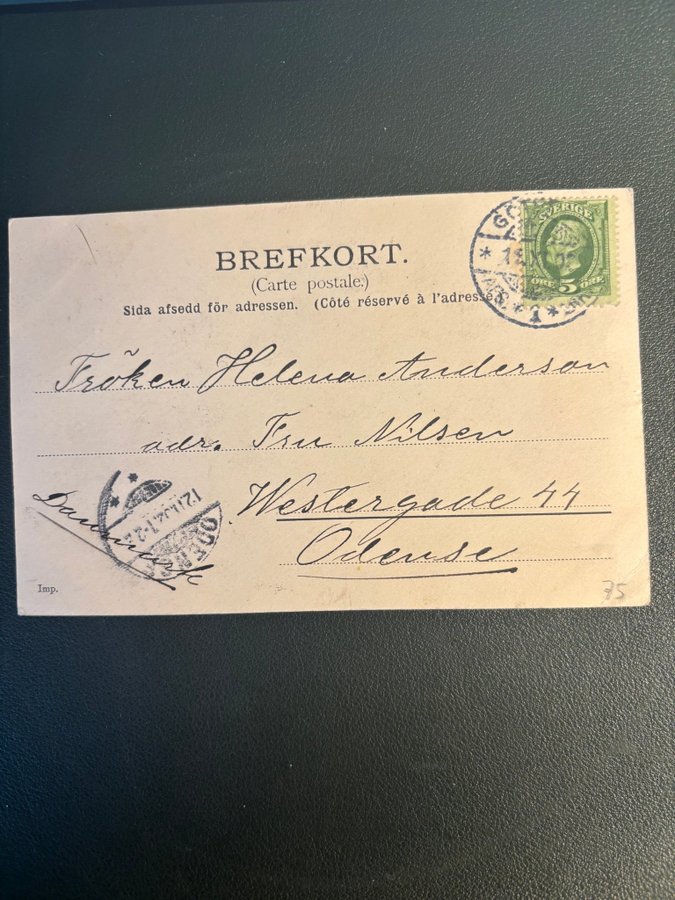 BREFKORT.
(Carte postale.)
Sida afsedd för adressen. (Côté réservé à l'adresse
SVERIGE
ÖRE 5 ÖRE
1
Fröken Helena Anderson
adr. Fru Nilsen
Westergade 44
Odense
Danmark
ODENSE
12.11.02.1-2
Imp.
75